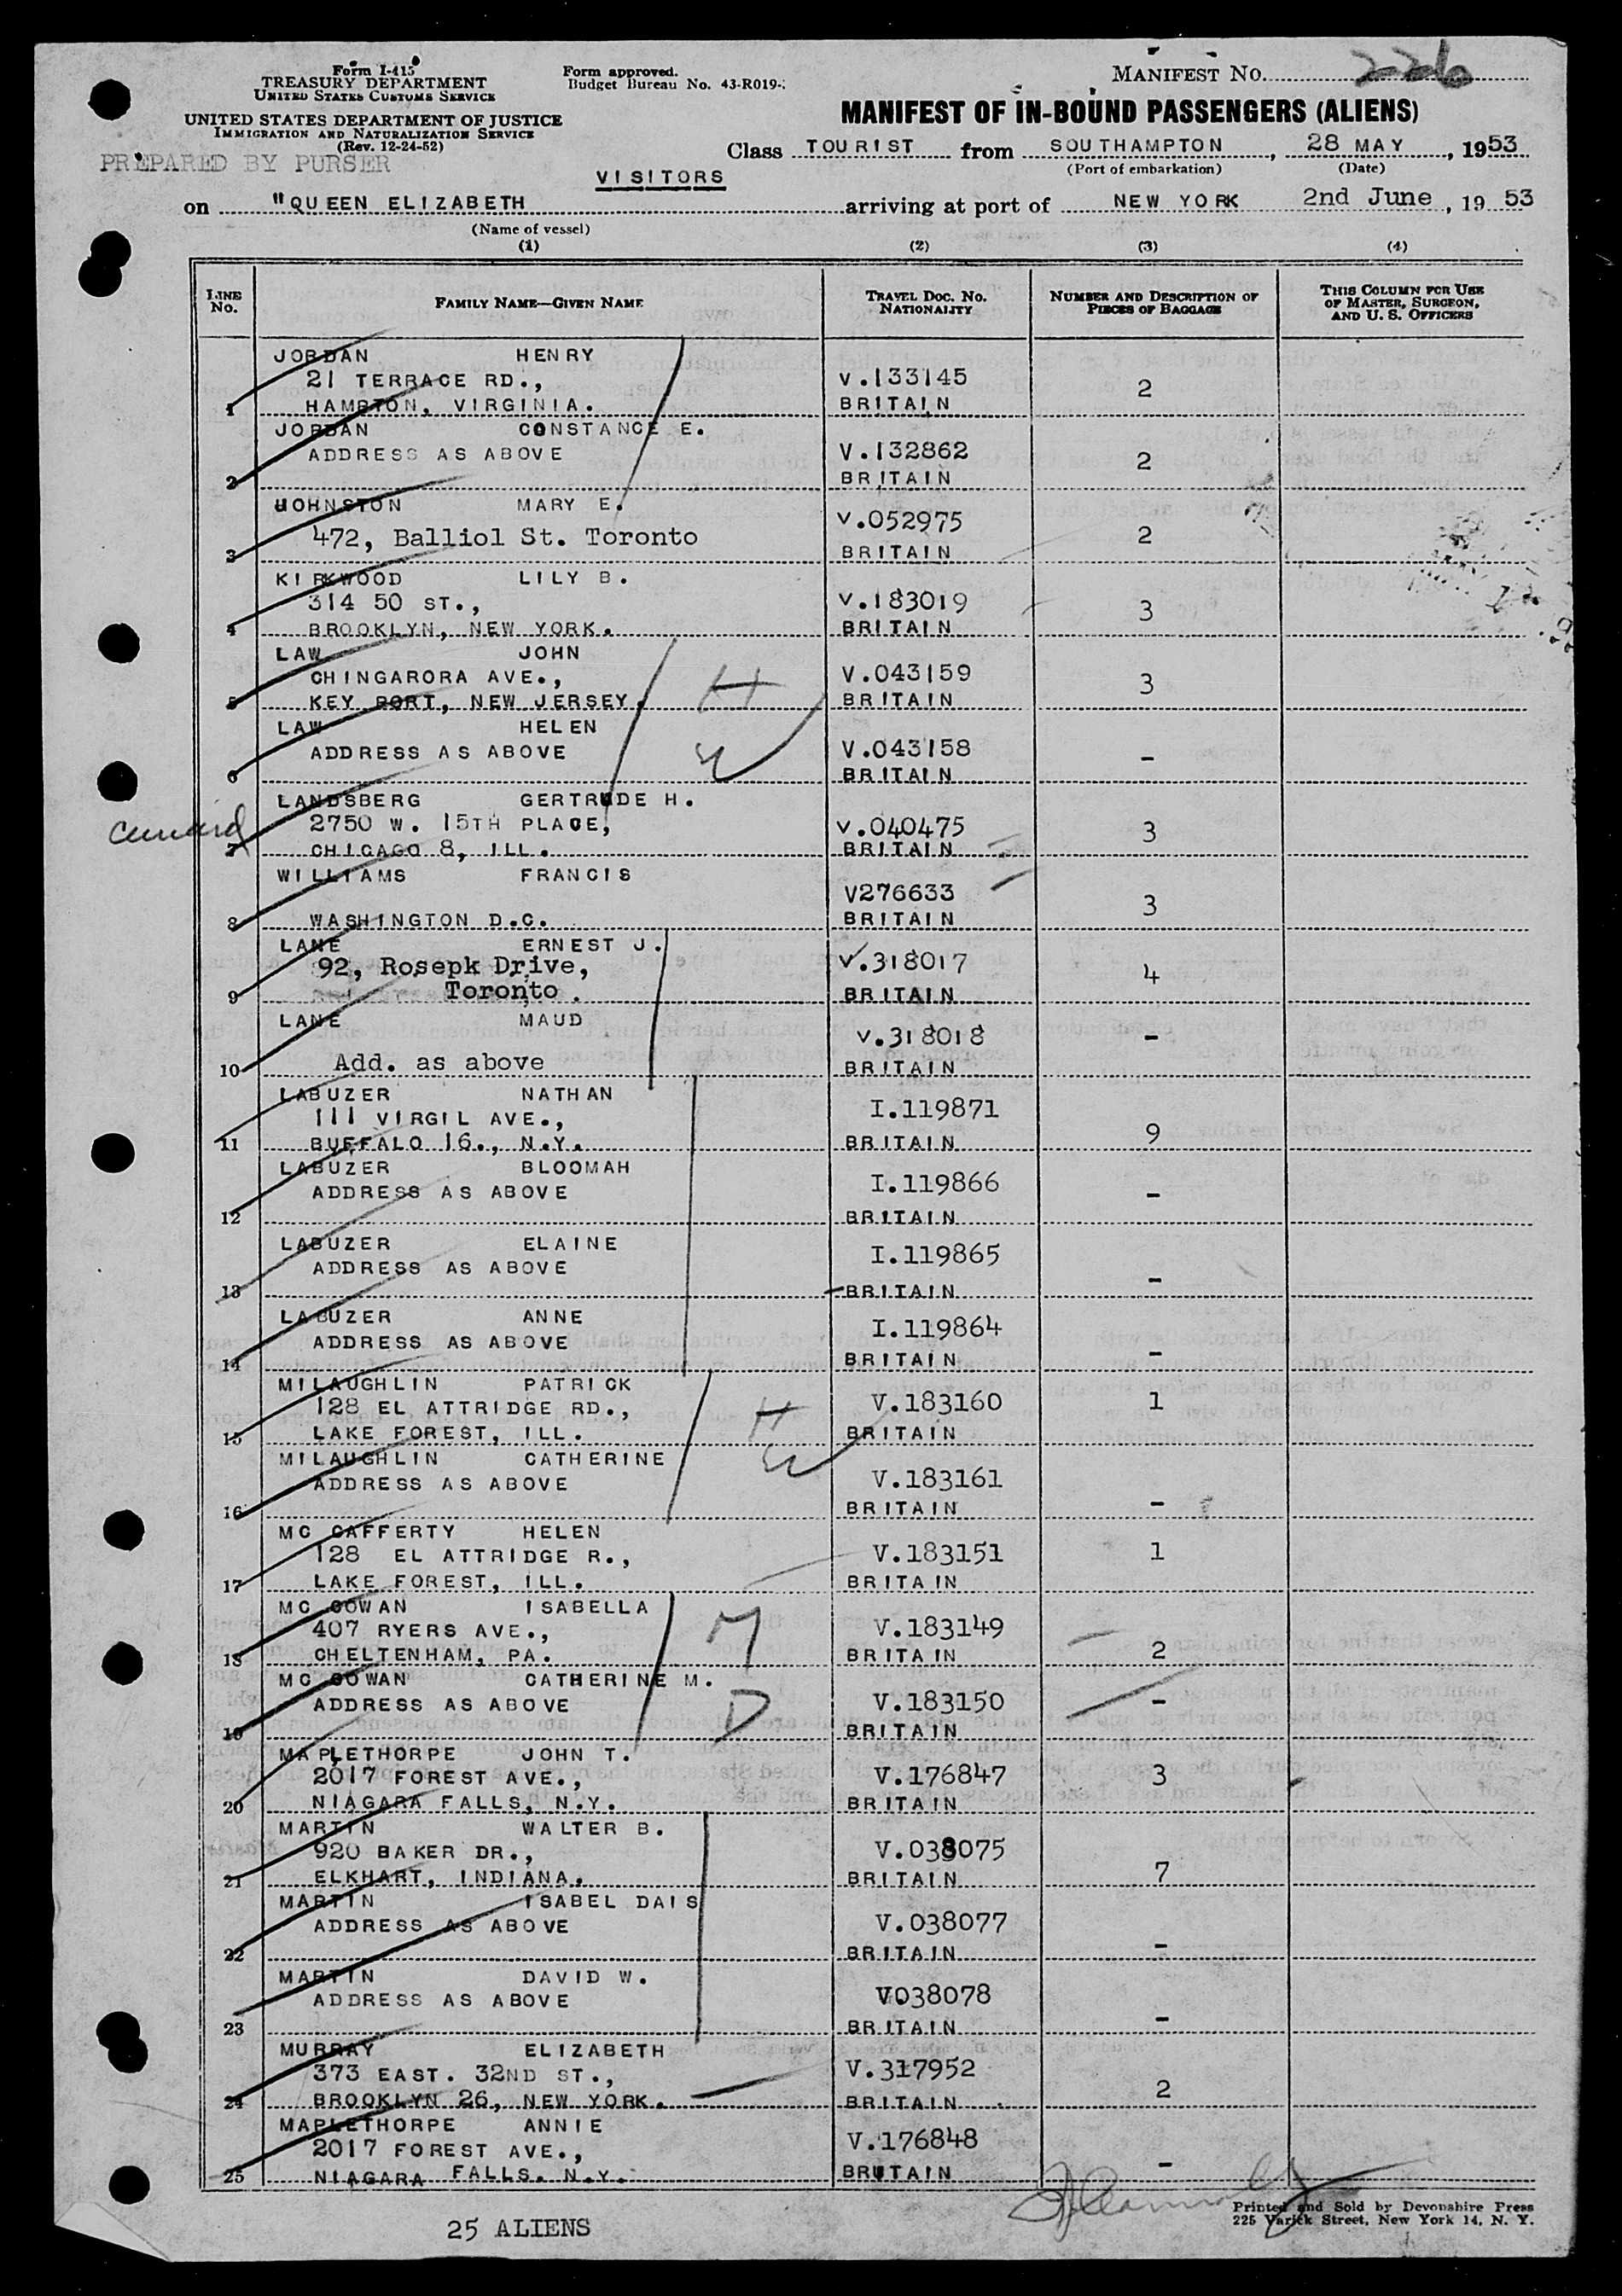 Form I-415
TREASURY DEPARTMENT
UNITED STATES CUSTOMS SERVICE
UNITED STATES DEPARTMENT OF JUSTICE
IMMIGRATION AND NATURALIZATION SERVICE
(Rev. 12-24-52)
PREPARED BY PURSER
Form approved.
Budget Bureau No. 43-R019-
MANIFEST NO. 226
MANIFEST OF IN-BOUND PASSENGERS (ALIENS)
Class TOURIST from SOUTHAMPTON, 28 MAY, 1953
(Port of embarkation) (Date)
VISITORS
on "QUEEN ELIZABETH arriving at port of NEW YORK 2nd June, 19 53
(Name of vessel)
(1) (2) (3) (4)
LINE NO. FAMILY NAME—GIVEN NAME TRAVEL DOC. NO. NATIONALITY NUMBER AND DESCRIPTION OF PIECES OF BAGGAGE THIS COLUMN FOR USE OF MASTER, SURGEON, AND U. S. OFFICERS
JORDAN HENRY
21 TERRACE RD., V.133145 2
1 HAMPTON, VIRGINIA. BRITAIN
JORDAN CONSTANCE E.
ADDRESS AS ABOVE V.132862 2
2 BRITAIN
JOHNSTON MARY E.
472, Balliol St. Toronto V.052975 2
3 BRITAIN
KIRKWOOD LILY B.
314 50 ST., V.183019 3
4 BROOKLYN, NEW YORK. BRITAIN
LAW JOHN
CHINGARORA AVE., V.043159 3
5 KEY PORT, NEW JERSEY. H BRITAIN
LAW HELEN
ADDRESS AS ABOVE W V.043158 -
6 BRITAIN
LANDSBERG GERTRUDE H.
cunard 2750 W. 15TH PLACE, V.040475 3
7 CHICAGO 8, ILL. BRITAIN
WILLIAMS FRANCIS
V276633 3
8 WASHINGTON D.C. BRITAIN
LANE ERNEST J.
92, Rosepk Drive, V.318017 4
9 Toronto. BRITAIN
LANE MAUD
V.318018 -
10 Add. as above BRITAIN
LABUZER NATHAN
111 VIRGIL AVE., I.119871
11 BUFFALO 16., N.Y. BRITAIN 9
LABUZER BLOOMAH
ADDRESS AS ABOVE I.119866 -
12 BRITAIN
LABUZER ELAINE
ADDRESS AS ABOVE I.119865 -
13 BRITAIN
LABUZER ANNE
ADDRESS AS ABOVE I.119864 -
14 BRITAIN
MILAUGHLIN PATRICK
128 EL ATTRIDGE RD., V.183160 1
15 LAKE FOREST, ILL. H BRITAIN
MILAUGHLIN CATHERINE W
ADDRESS AS ABOVE V.183161 -
16 BRITAIN
MC CAFFERTY HELEN
128 EL ATTRIDGE R., V.183151 1
17 LAKE FOREST, ILL. BRITAIN
MC COWAN ISABELLA
407 RYERS AVE., M V.183149 2
18 CHELTENHAM, PA. BRITAIN
MC COWAN CATHERINE M.
ADDRESS AS ABOVE D V.183150 -
19 BRITAIN
MAPLETHORPE JOHN T.
2017 FOREST AVE., V.176847 3
20 NIAGARA FALLS, N.Y. BRITAIN
MARTIN WALTER B.
920 BAKER DR., V.038075
21 ELKHART, INDIANA. BRITAIN 7
MARTIN ISABEL DAIS
ADDRESS AS ABOVE V.038077 -
22 BRITAIN
MARTIN DAVID W.
ADDRESS AS ABOVE V038078 -
23 BRITAIN
MURRAY ELIZABETH
373 EAST. 32ND ST., V.317952 2
24 BROOKLYN 26, NEW YORK. BRITAIN
MAPLETHORPE ANNIE
2017 FOREST AVE., V.176848 -
25 NIAGARA FALLS. N.Y. BRITAIN
Printed and Sold by Devonshire Press
225 Varick Street, New York 14, N. Y.
25 ALIENS